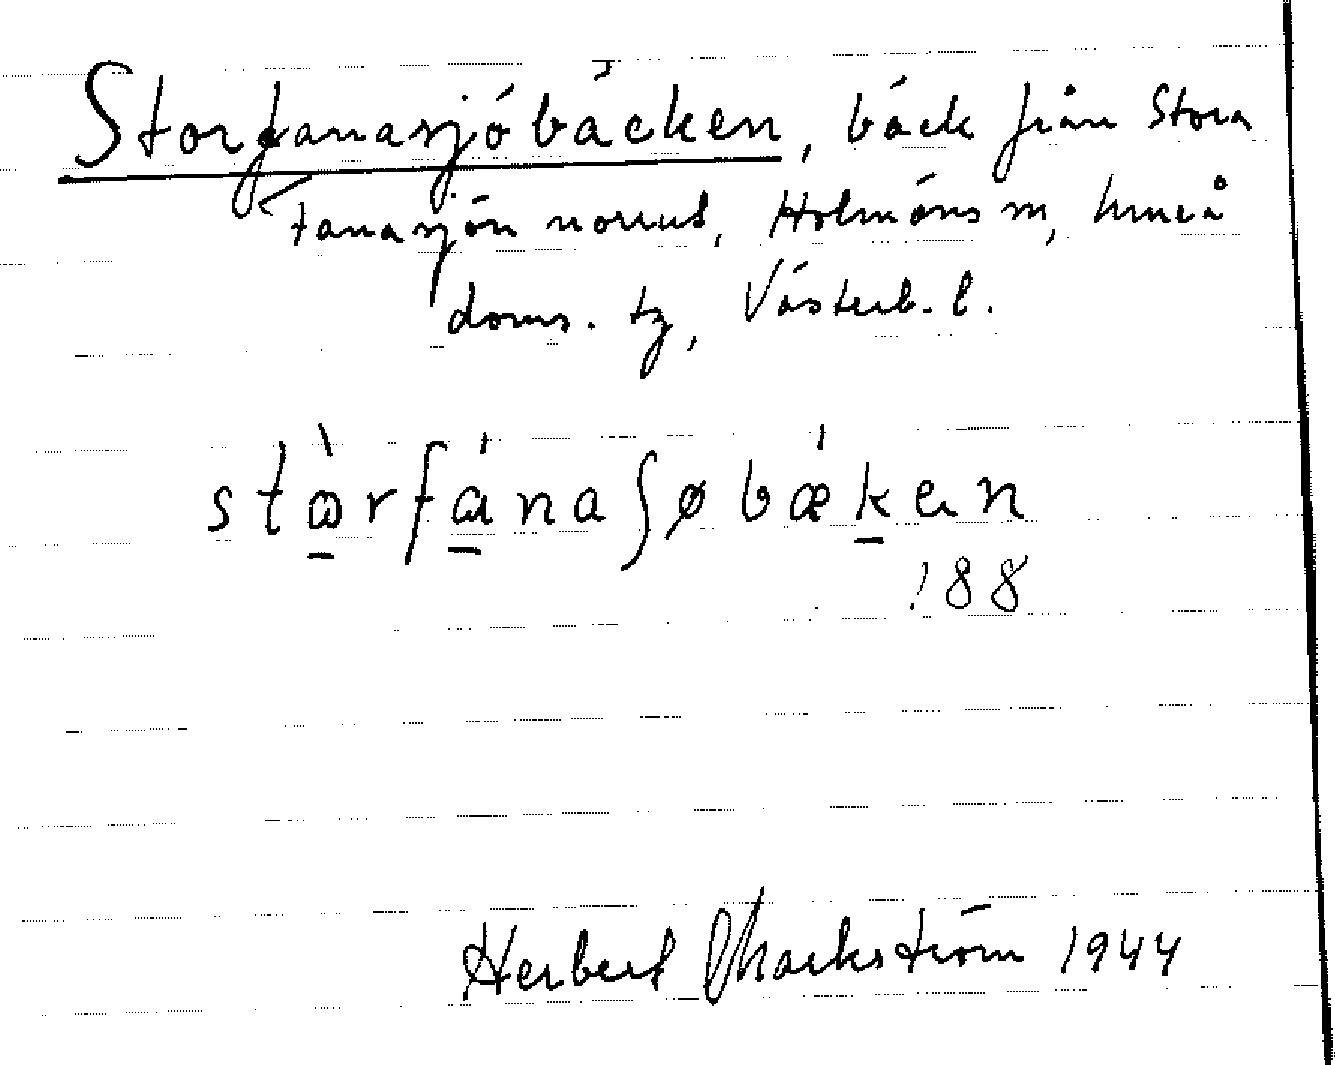 Storfanasjöbäcken, bäck från Stora
Fanasjön norrut, Holmöns sn, Umeå
doms. tg, Västerb. l.
stɷ̀rfɑ́naʃøbǽken
!88
Herbert Markström 1944